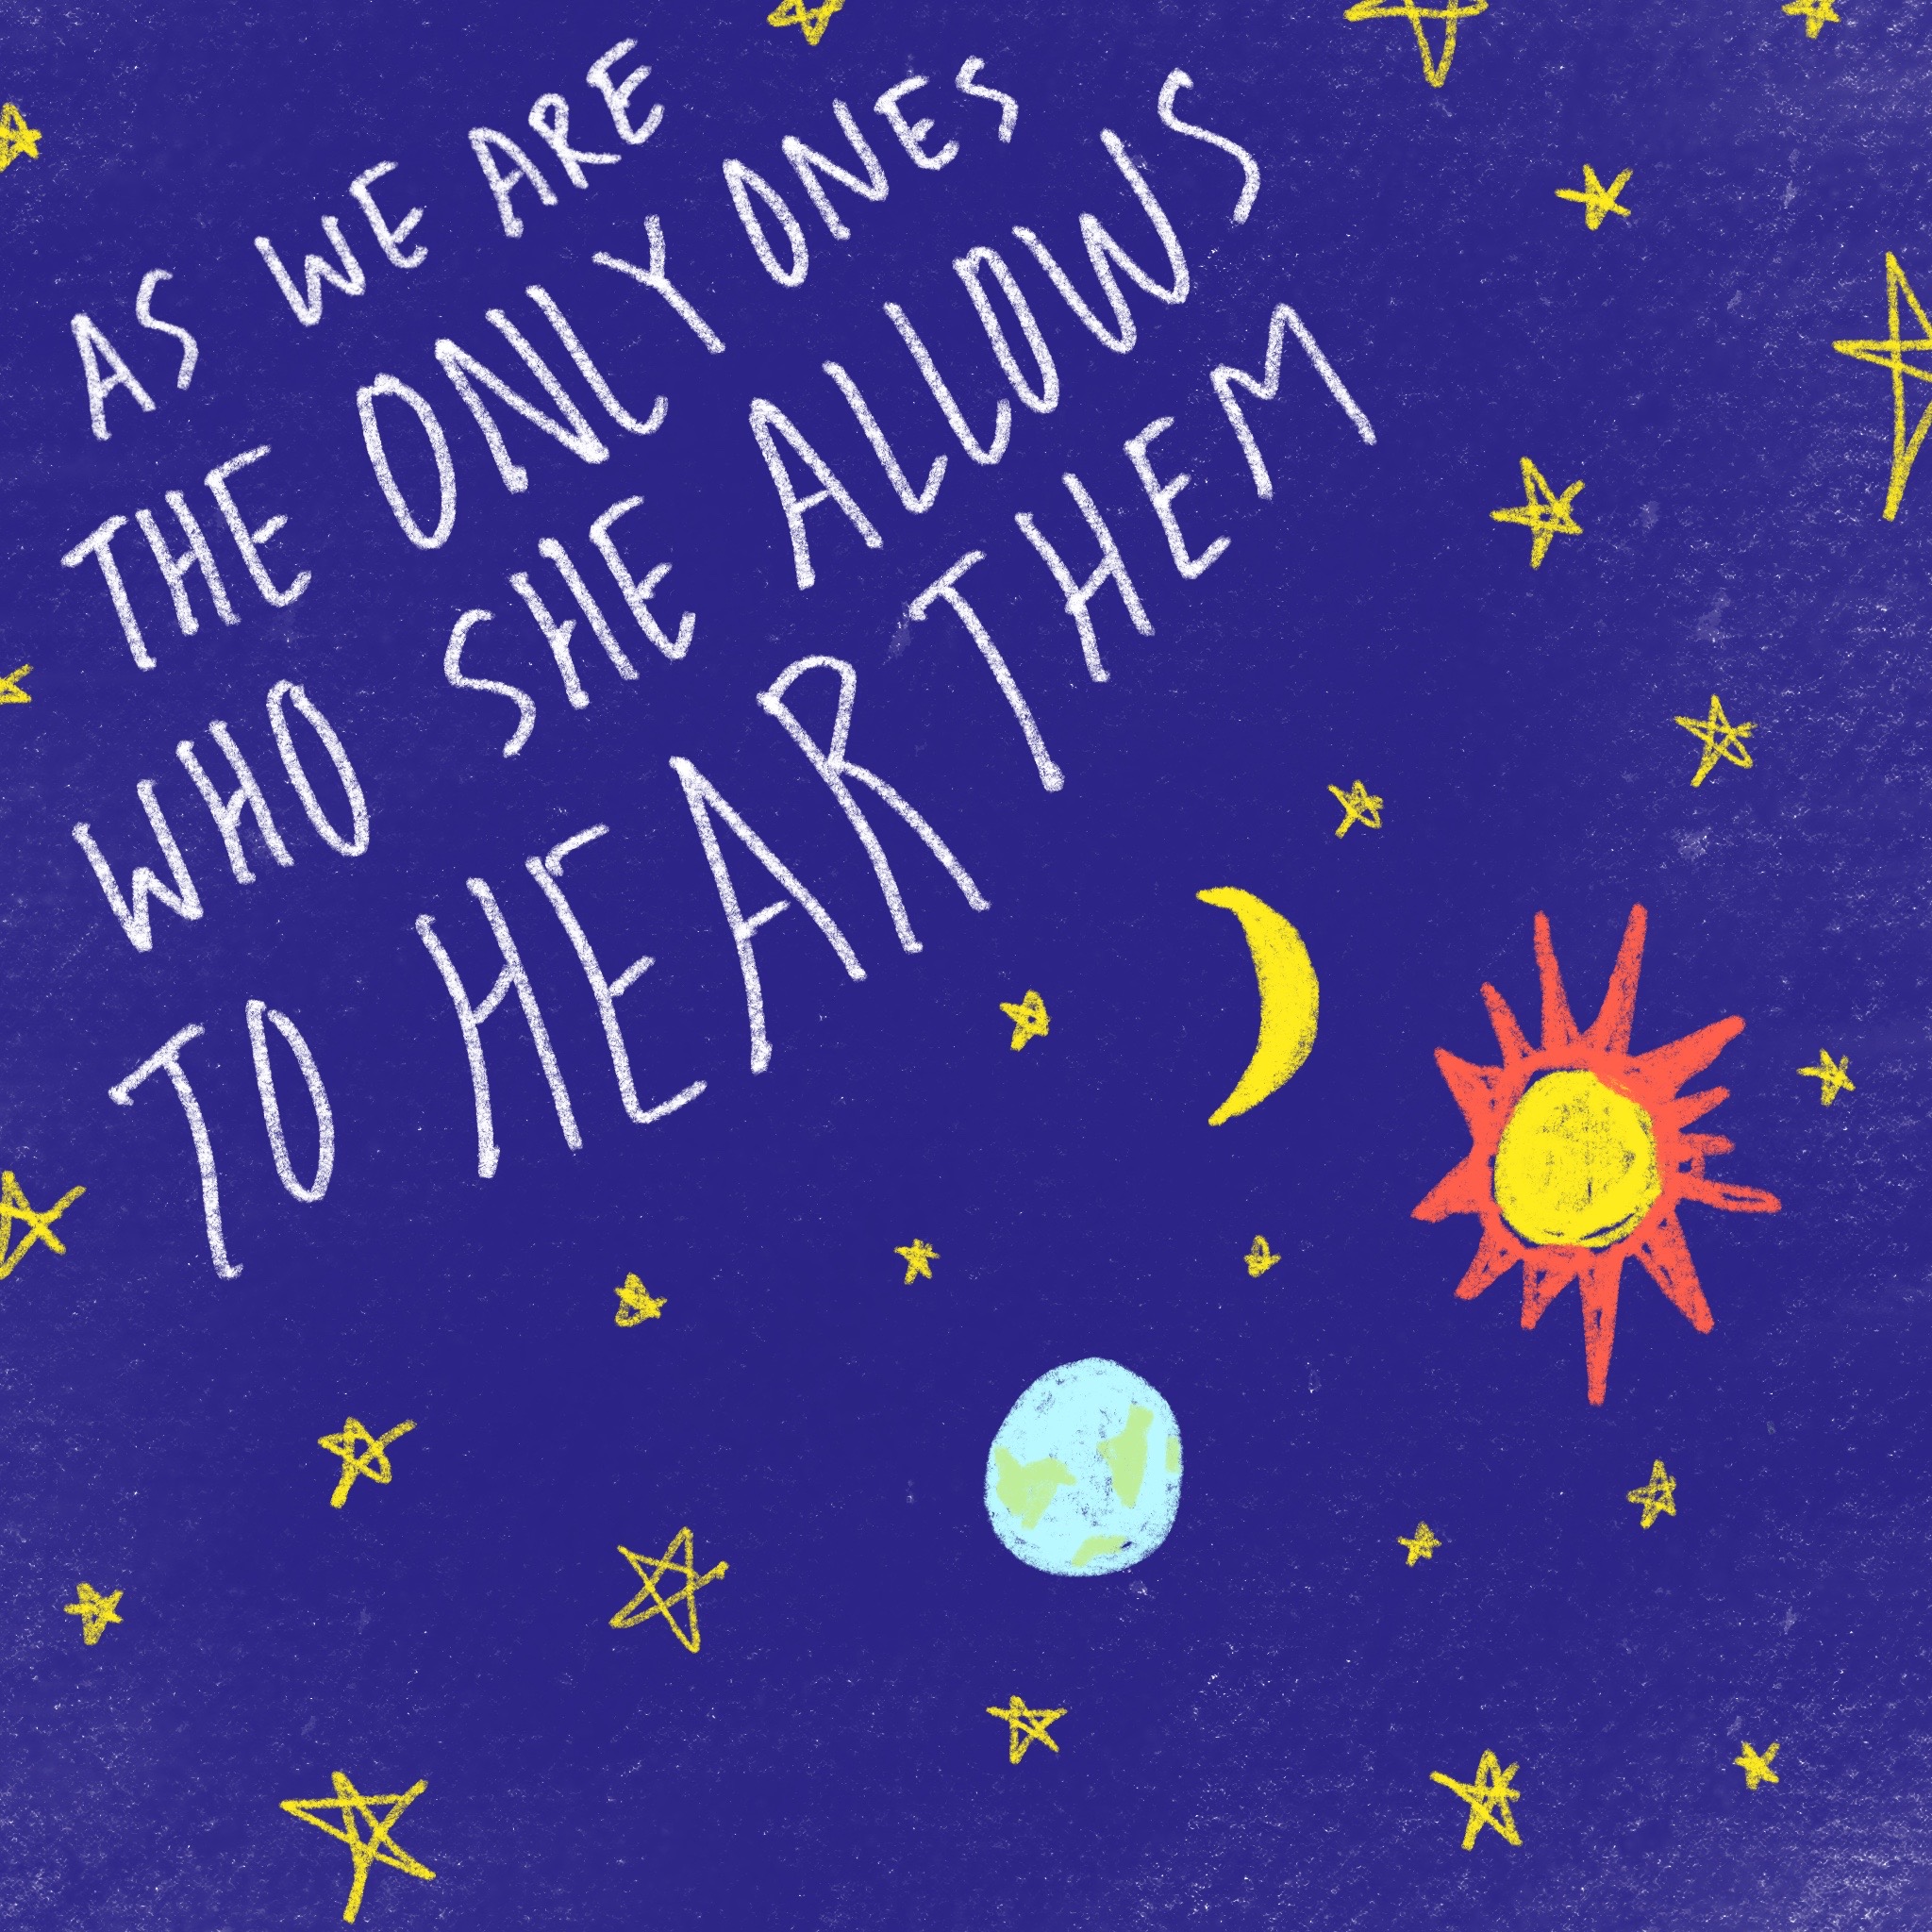 AS WE ARE
THE ONLY ONES
WHO SHE ALLOWS
TO HEAR THEM